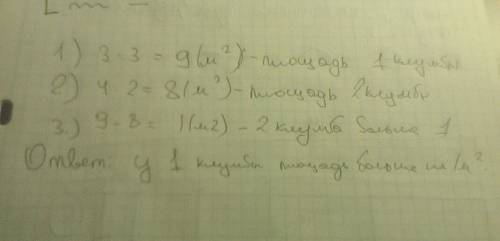 1) 3·3 = 9(м²) - площадь 1 клумбы
2) 4 2 = 8(м²) - площадь 2 клумбы
3.) 9 - 8 = 1(м2) - 2 клумба больше 1
Ответ: у 1 клумбы площадь больше 1м².